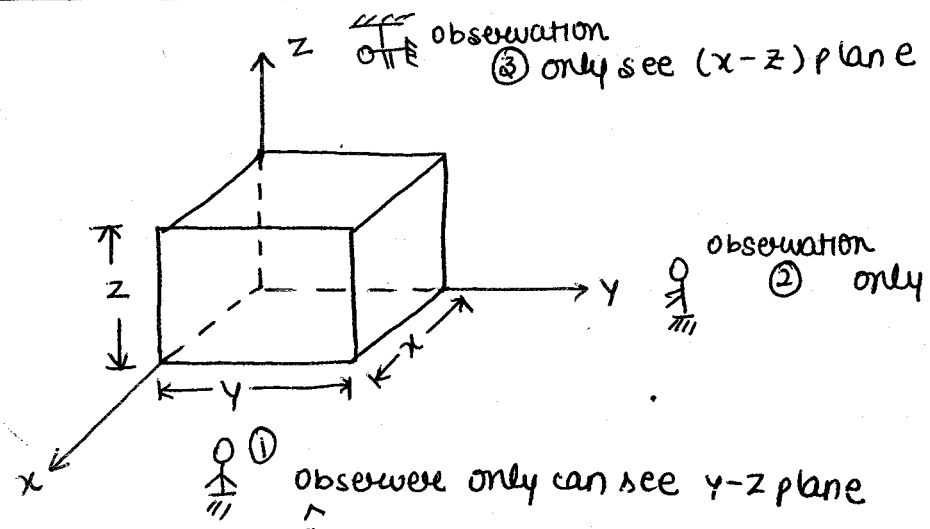 Z
observation
③ only see (x-z) plane
observation
② only
Y
Z
x
Y
x
①
observere only can see y-z plane